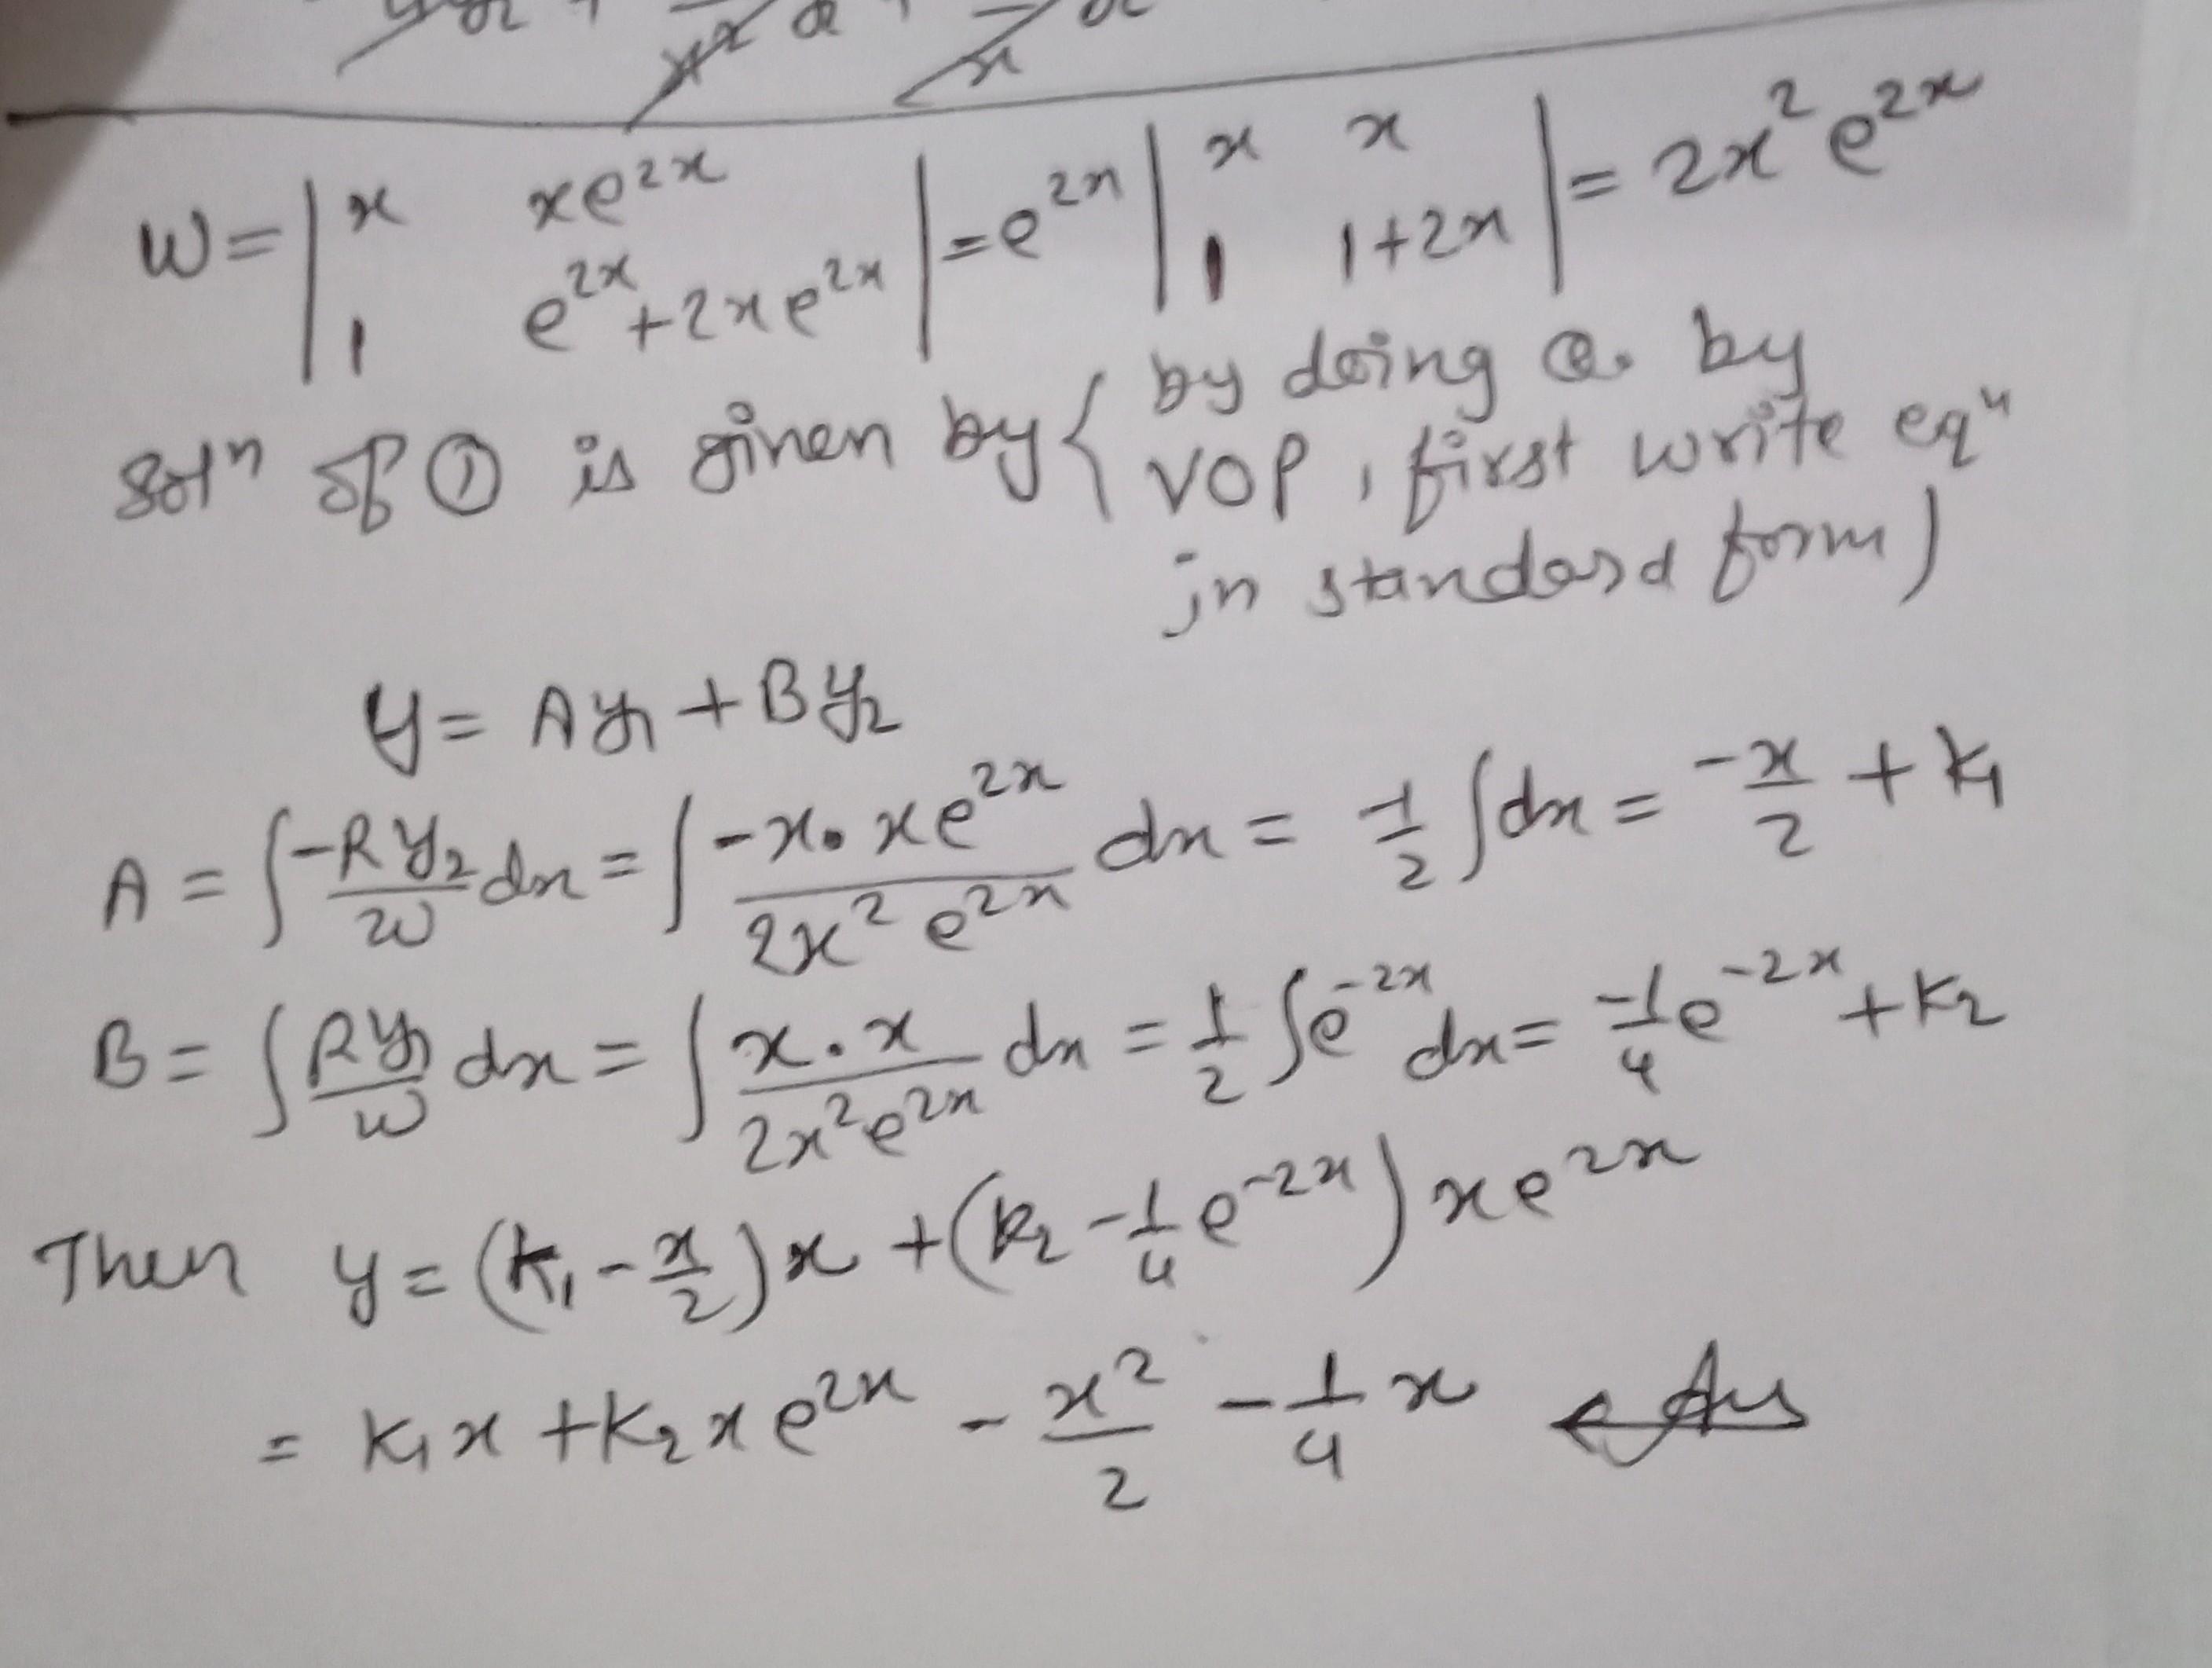 W = | x xe^{2x} ; 1 e^{2x}+2xe^{2x} | = e^{2x} | x x ; 1 1+2x | = 2x^2 e^{2x}
Sol^n of ① is given by { by doing Q. by
VOP, first write eq^n
in standard form )
y = Ay_1 + By_2
A = ∫ -Ry_2/W dx = ∫ -x·xe^{2x}/2x^2 e^{2x} dx = -1/2 ∫dx = -x/2 + k_1
B = ∫ Ry_1/W dx = ∫ x·x/2x^2e^{2x} dx = 1/2 ∫e^{-2x} dx = -1/4 e^{-2x} + k_2
Then y = (k_1 - x/2)x + (k_2 - 1/4 e^{-2x}) xe^{2x}
= k_1x + k_2xe^{2x} - x^2/2 - 1/4 x ← Ans